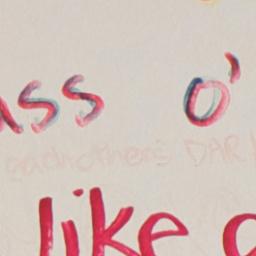 ass o'
eachothers DAR
like